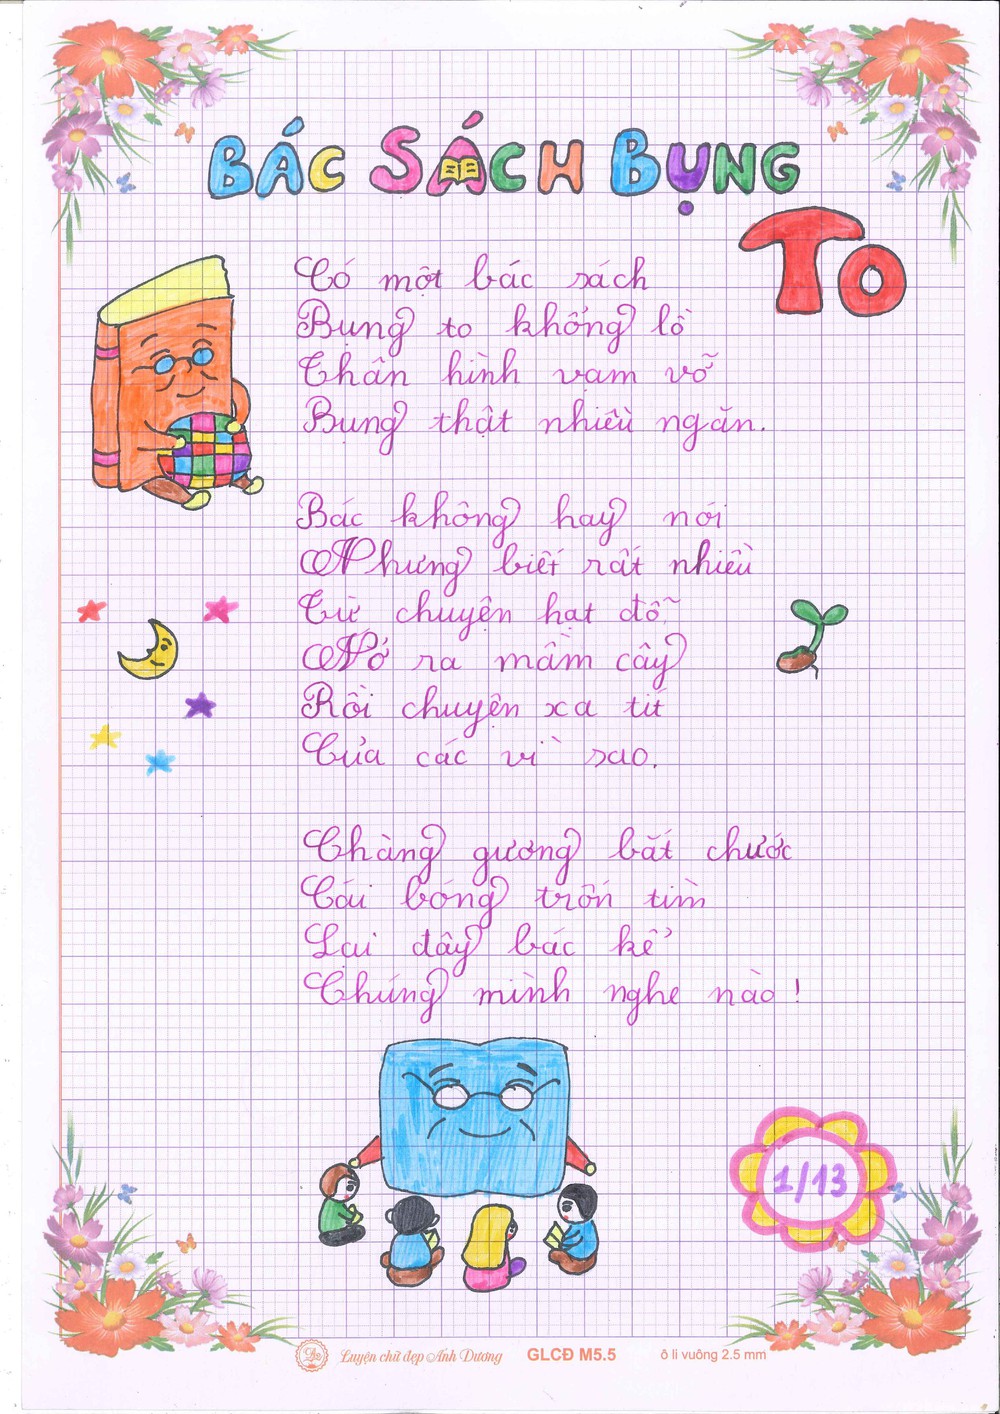 BÁC SÁCH BỤNG
TO
Có một bác sách
Bụng to khổng lồ
Thân hình vạm vỡ
Bụng thật nhiều ngăn.
Bác không hay nói
Nhưng biết rất nhiều
Từ chuyện hạt đỗ
Nở ra mầm cây
Rồi chuyện xa tít
Của các vì sao.
Chàng gương bắt chước
Cái bóng trốn tìm
Lại đây bác kể
Chúng mình nghe nào!
1/13
Luyện chữ đẹp Ánh Dương GLCĐ M5.5 ô li vuông 2.5 mm